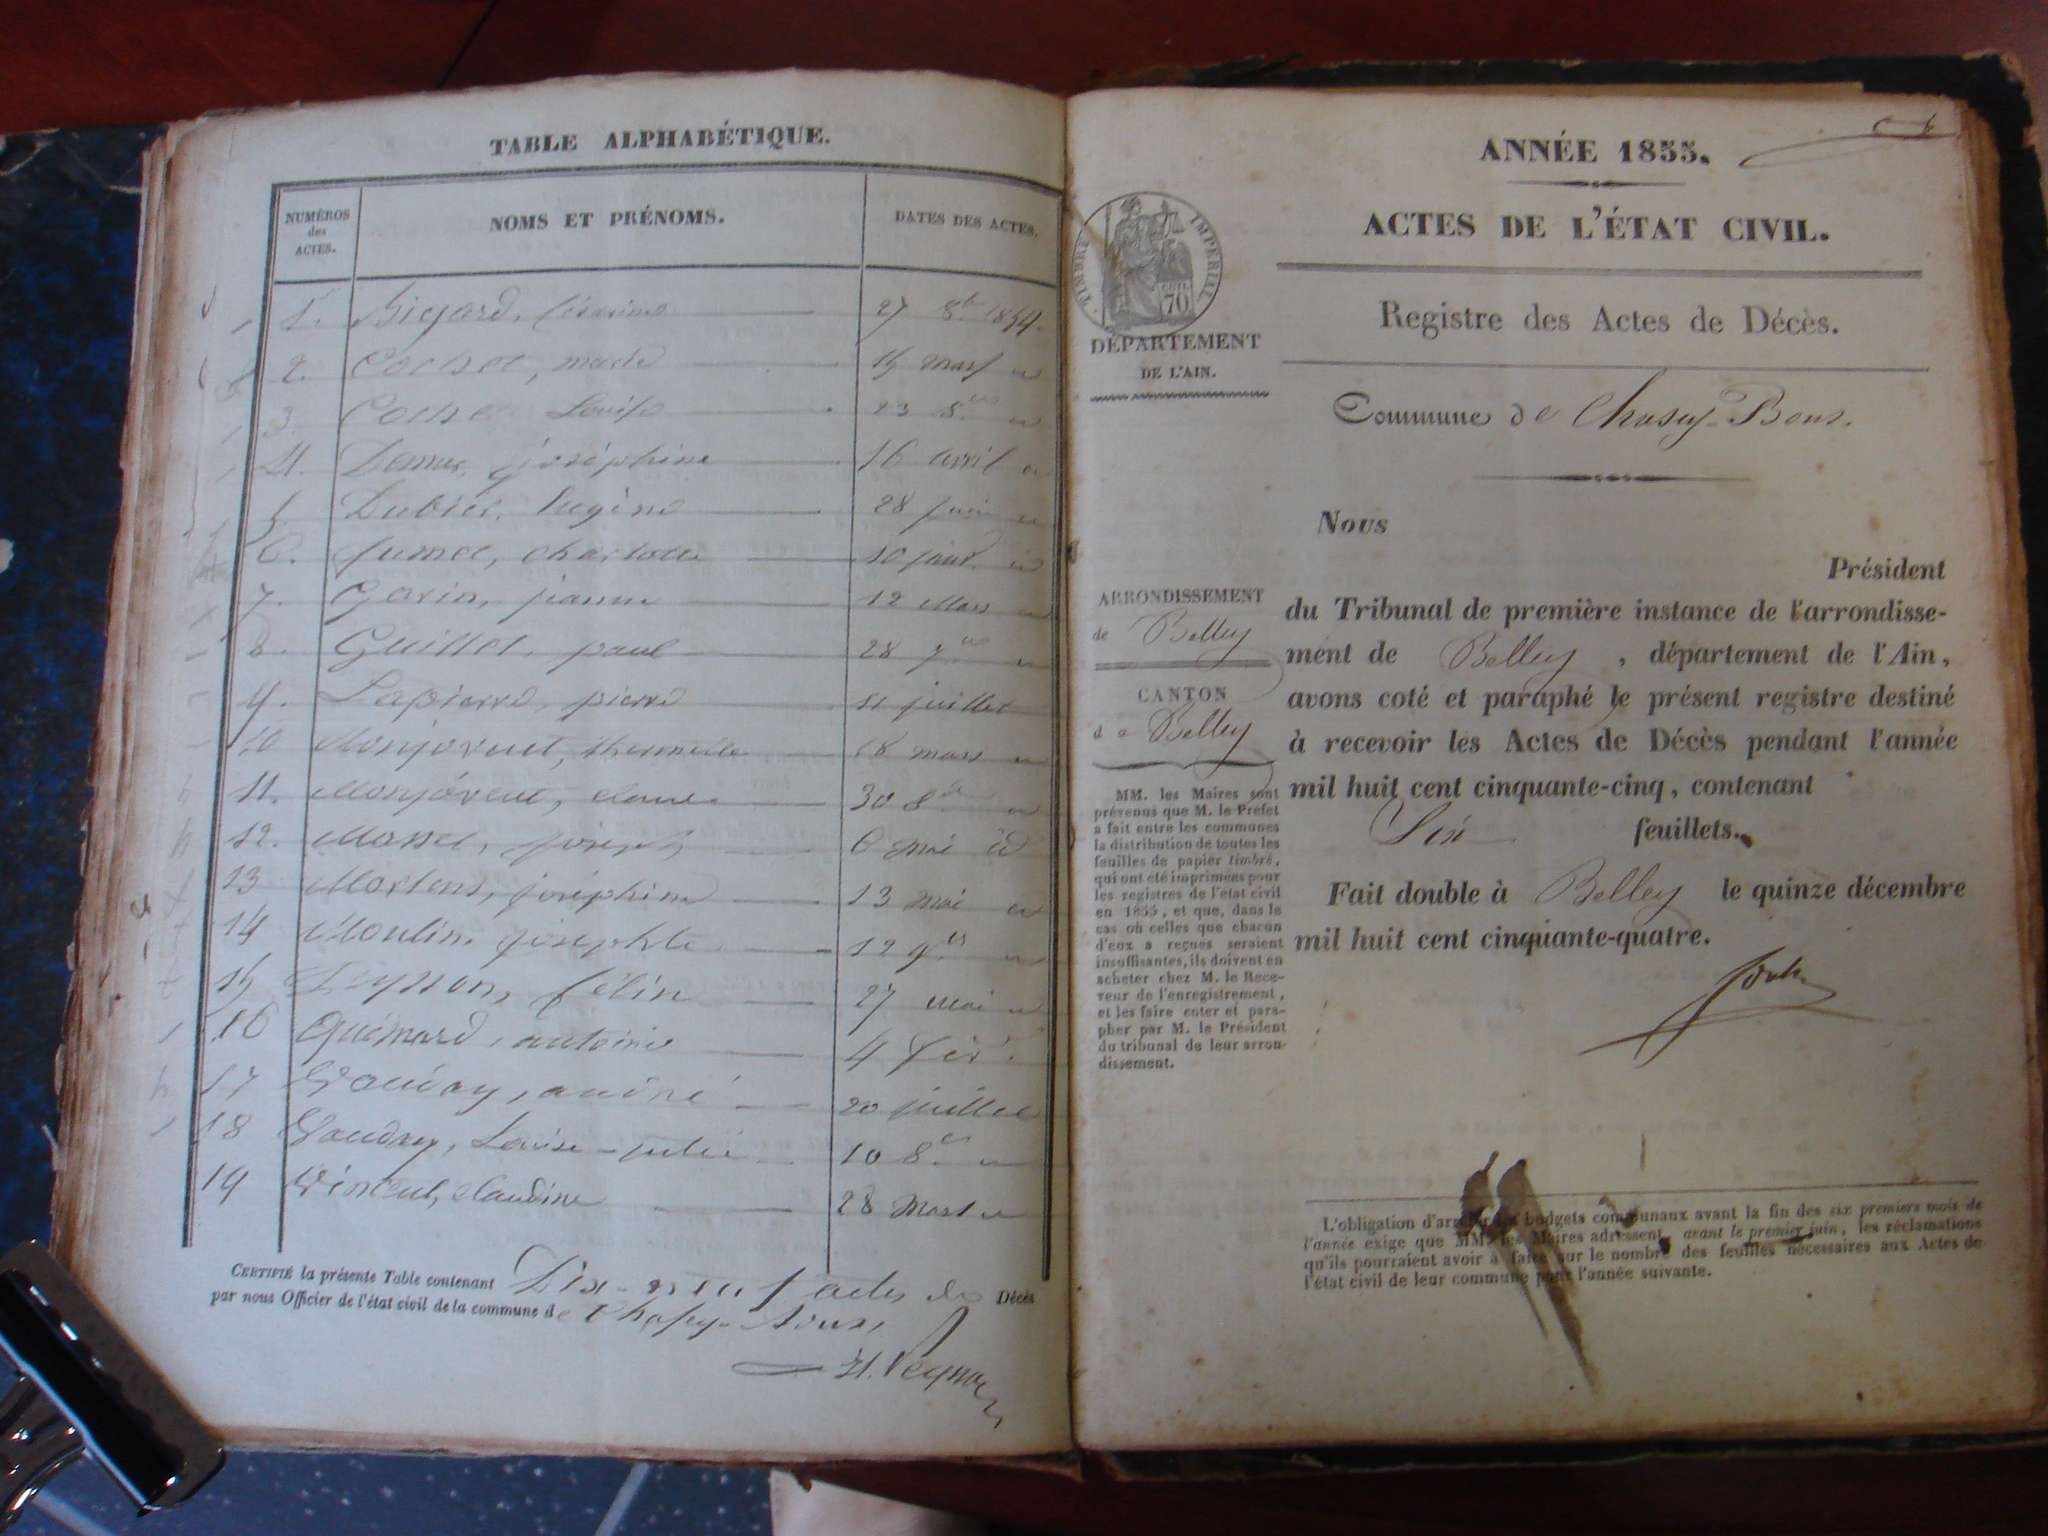 TABLE ALPHABÉTIQUE.
NUMÉROS des ACTES. NOMS ET PRÉNOMS. DATES DES ACTES.
1. Bigard, 27 8bre 1854.
2. Cochet, marie 15 mars id
3. Cochet Louise 23 8bre id
4. joséphine 16 avril id
5. Dubiet, Eugène 28 juin id
6. Jumet, charlotte 10 janv. id
7. Gavin, jeanne 12 Mars id
8. Guillet, paul 28 7bre id
9. Lapierre, pierre 11 juillet
10 Monjovent, 18 mars id
11. Monjovent, claude 30 8bre id
12. Masset, joseph 6 Mai id
13 Martens, joséphine 13 Mai id
14 Moulin, josephte 12 9bre id
15 Peysson, félix 27 mai id
16 Quémard, antoine 4 févr.
17 Vauday, andré 20 juillet
18 Vauday, Louise-julie 10 8bre id
19 Vincent, claudine 28 Mars id
CERTIFIÉ la présente Table contenant Dix-neuf actes de Décès
par nous Officier de l'état civil de la commune de Chasey-Bons,
H. Peysson
ANNÉE 1855.
ACTES DE L'ÉTAT CIVIL.
TIMBRE IMPÉRIAL
70
Registre des Actes de Décès.
DÉPARTEMENT
DE L'AIN.
Commune de Chasey-Bons.
Nous
Président
du Tribunal de première instance de l'arrondisse-
ment de Belley, département de l'Ain,
avons coté et paraphé le présent registre destiné
à recevoir les Actes de Décès pendant l'année
mil huit cent cinquante-cinq, contenant
Six feuillets.
Fait double à Belley le quinze décembre
mil huit cent cinquante-quatre.
ARRONDISSEMENT
de Belley
CANTON
de Belley
MM. les Maires sont
prévenus que M. le Préfet
a fait entre les communes
la distribution de toutes les
feuilles de papier timbré,
qui ont été imprimées pour
les registres de l'état civil
en 1855, et que, dans le
cas où celles que chacun
d'eux a reçues seraient
insuffisantes, ils doivent en
acheter chez M. le Rece-
veur de l'enregistrement,
et les faire coter et para-
pher par M. le Président
du tribunal de leur arron-
dissement.
L'obligation d'arrêter les budgets communaux avant la fin des six premiers mois de
l'année exige que MM. les Maires adressent, avant le premier juin, les réclamations
qu'ils pourraient avoir à faire sur le nombre des feuilles nécessaires aux Actes de
l'état civil de leur commune pour l'année suivante.